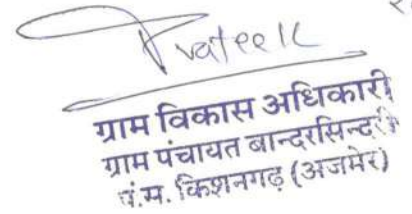 Prateek
ग्राम विकास अधिकारी
ग्राम पंचायत बान्दरसिन्दरी
पं.स. किशनगढ़ (अजमेर)